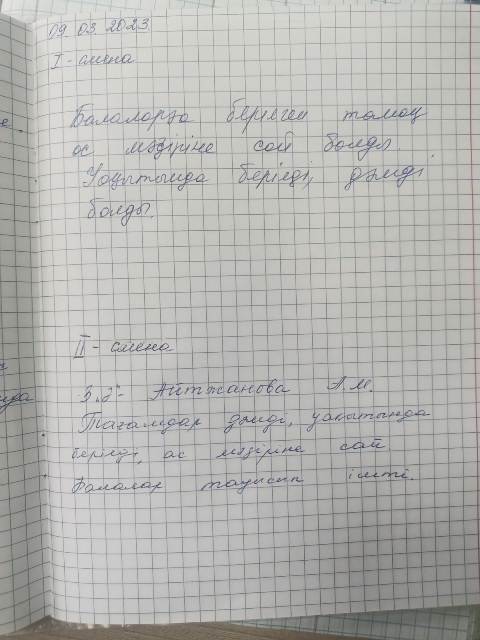 09 03. 2023
I - смена
Балаларға берілген тамақ
ас мәзіріне сай болды.
Уақытында берілді, дәмді
болды.
II - смена
3 "д" - Айтжанова А.М.
Тағамдар дәмді, уақытында
берілді, ас мәзіріне сай
балалар тауысып ішті.